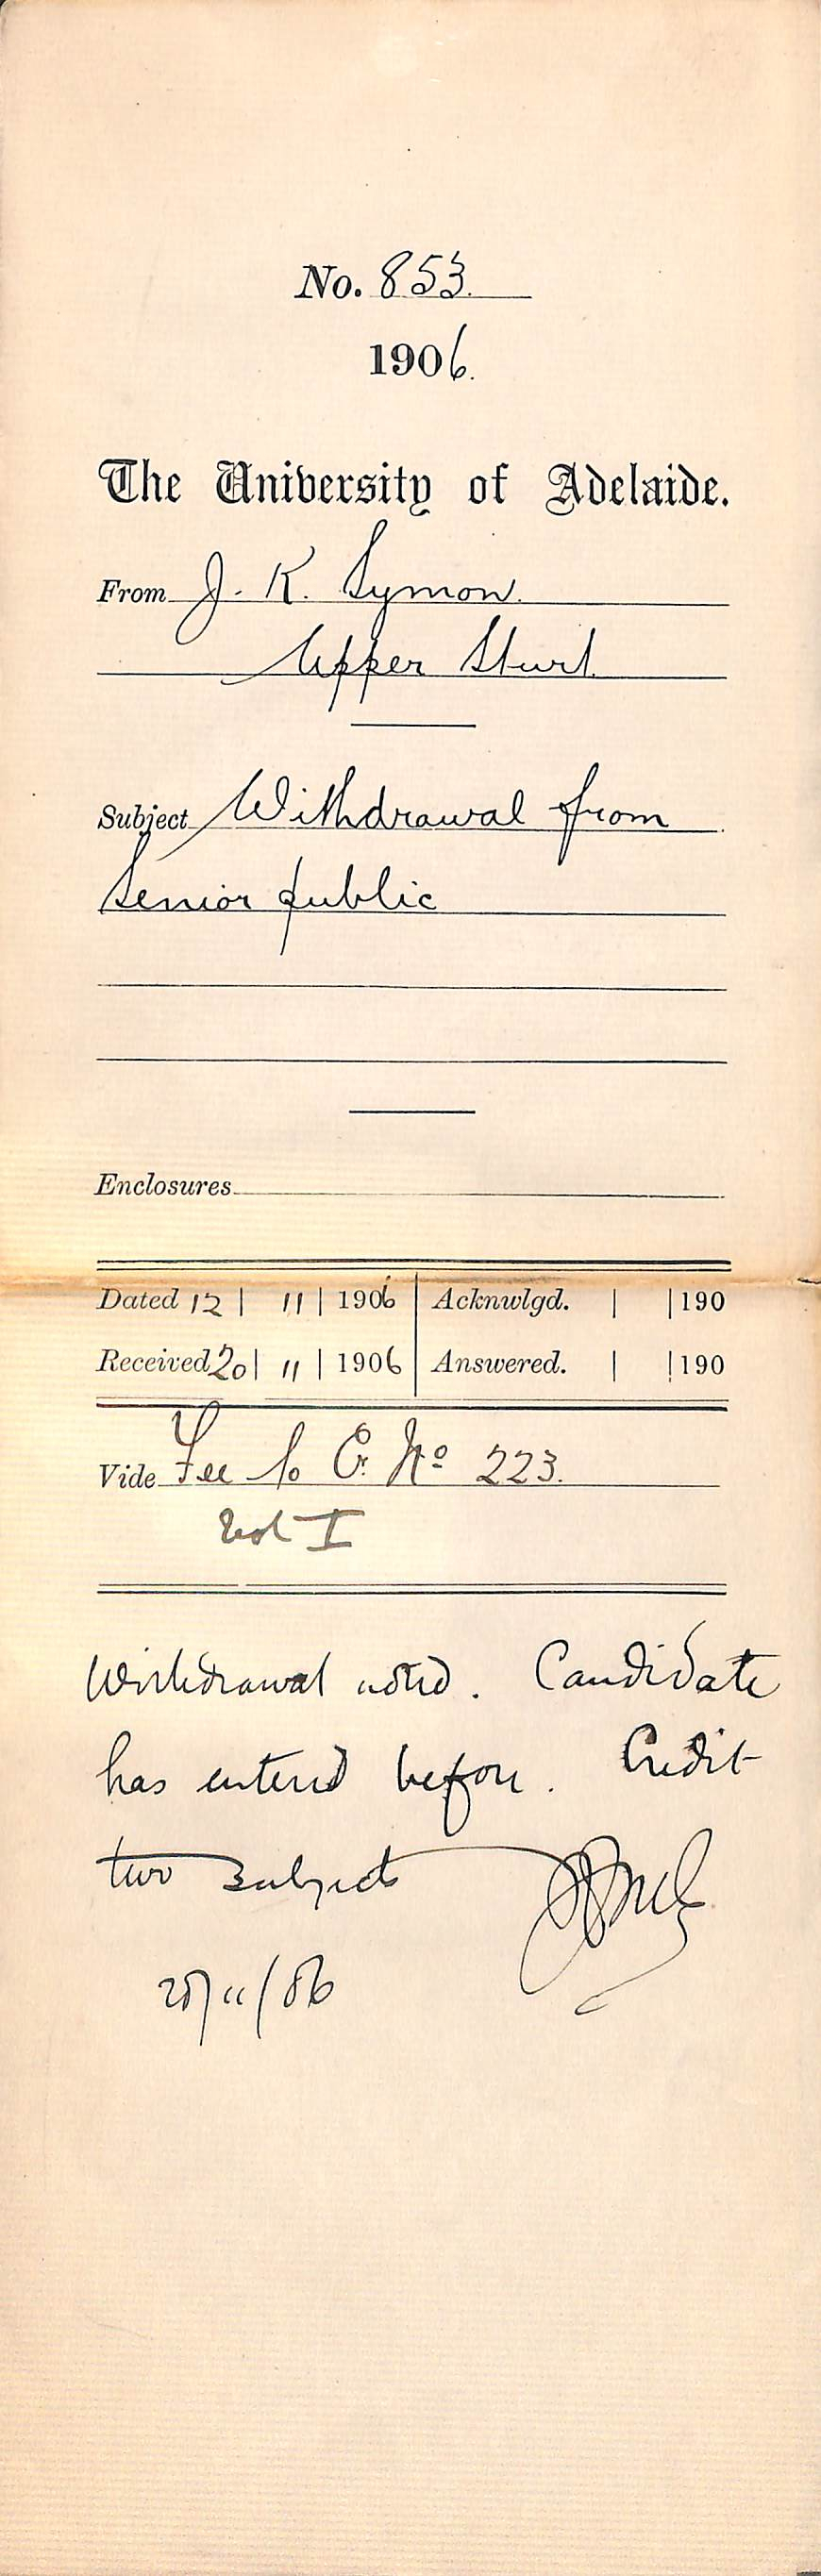 No. 853.
1906.
The University of Adelaide.
From J. K. Symon.
Upper Sturt.
Subject Withdrawal from
Senior public
Enclosures
Dated 12 | 11 | 1906 Acknwlgd. | | 190
Received 20 | 11 | 1906 Answered. | | 190
Vide Fee No 223.
Vol I
Withdrawal noted. Candidate
has entered before. Credit
two subjects
/11/06